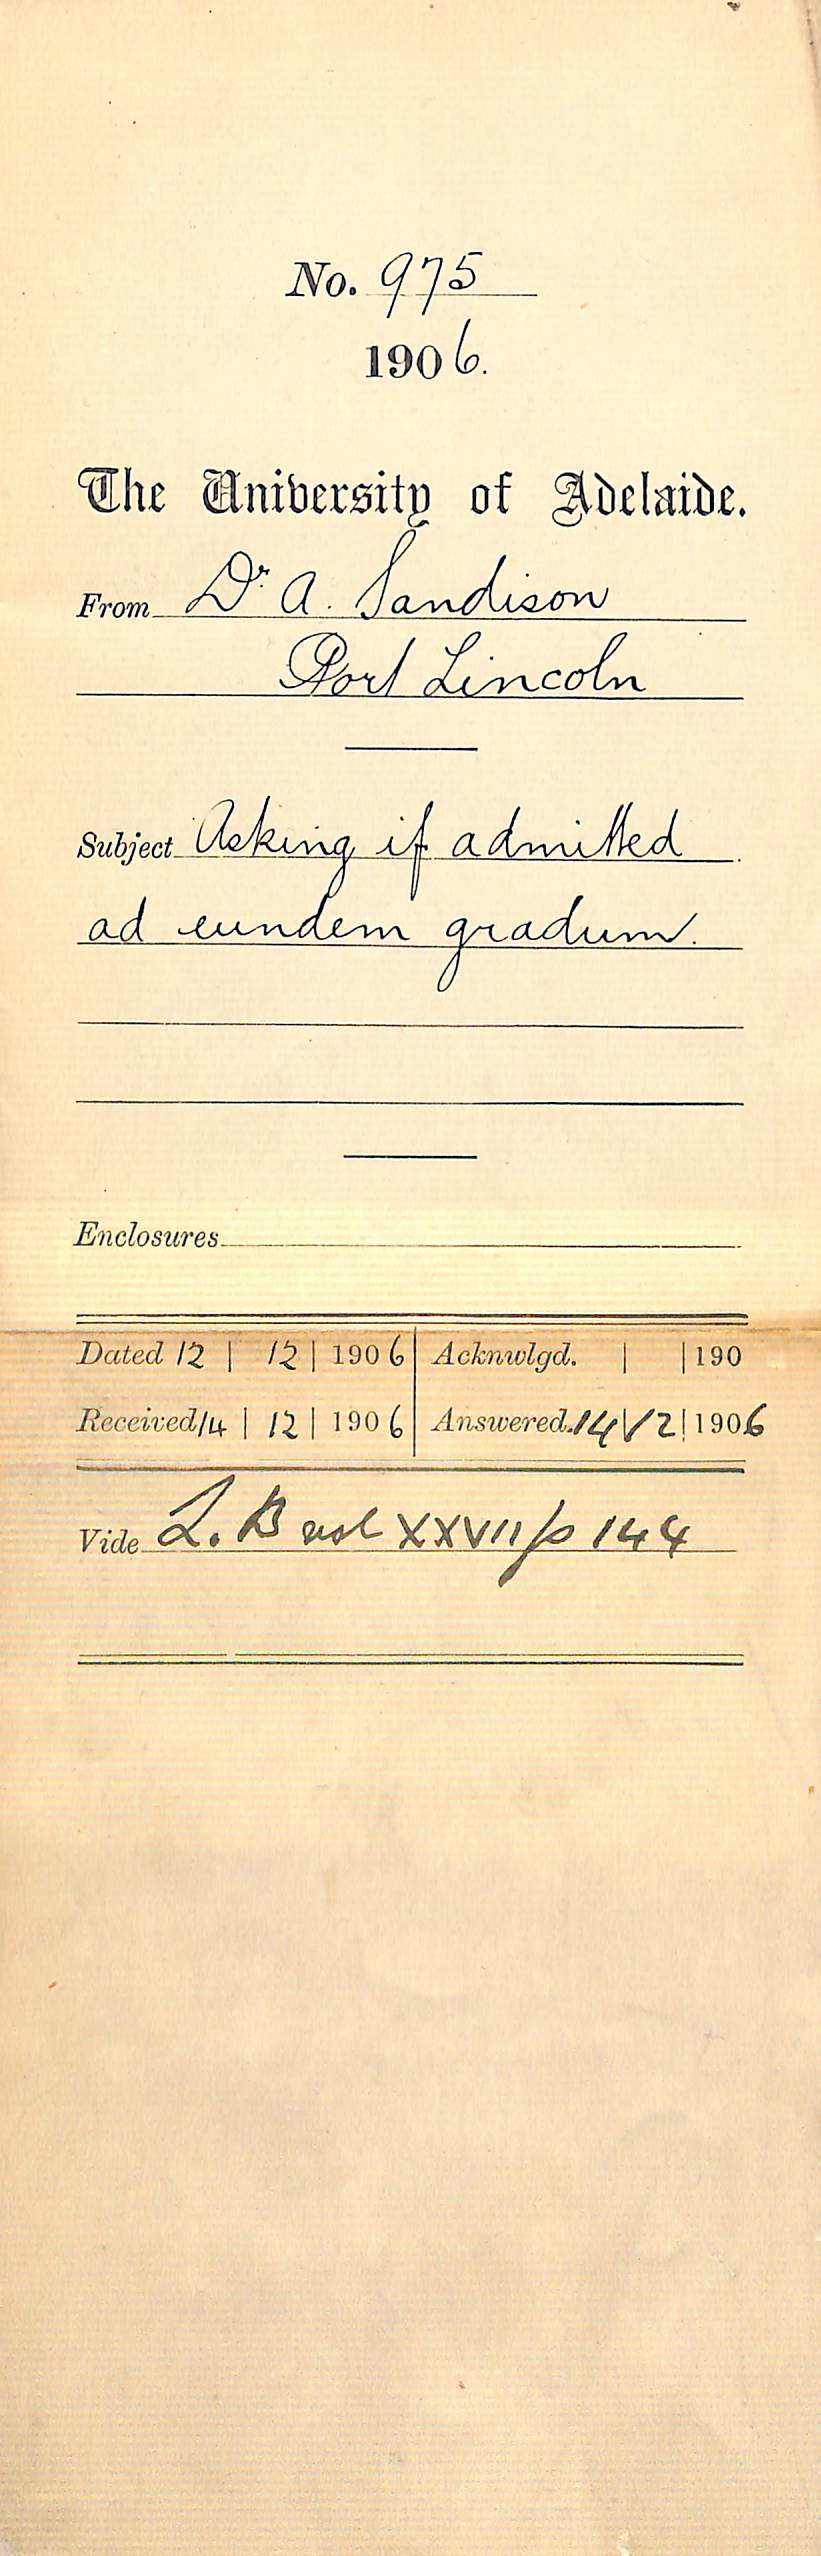 No. 975
1906.
The University of Adelaide.
From Dr. A. Sandison
Port Lincoln
Subject Asking if admitted
ad eundem gradum.
Enclosures
Dated 12 | 12 | 1906 Acknwlgd. | | 190
Received 14 | 12 | 1906 Answered. 14 | 12 | 1906
Vide L. B vol XXVII p 144